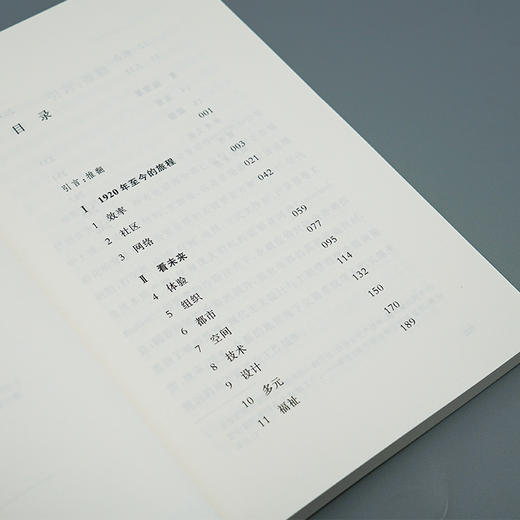 目 录
引言：推翻 001
Ⅰ 1920年至今的旅程
1 效率 003
2 社区 021
3 网络 042
Ⅱ 看未来
4 体验 059
5 组织 077
6 都市 095
7 空间 114
8 技术 132
9 设计 150
10 多元 170
11 福祉 189